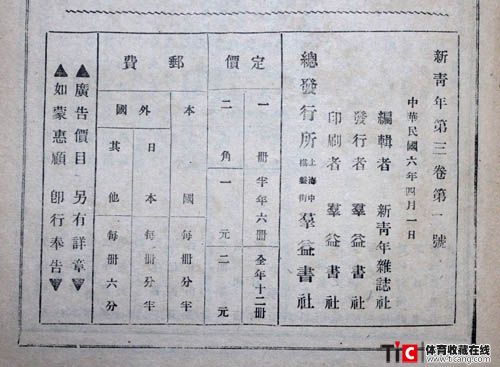 新青年第三卷第一號
中華民國六年四月一日
編輯者 新青年雜誌社
發行者 羣益書社
印刷者 羣益書社
總發行所 上海中棋盤街 羣益書社
定價
一冊 半年六冊 全年十二冊
二角 一元 二元
郵費
本國 每冊分半
外國
日本 每冊分半
其他 每冊六分
▲廣告價目 另有詳章▼
▲如蒙惠顧 卽行奉告▼
TIC 体育收藏在线
www.ticang.com